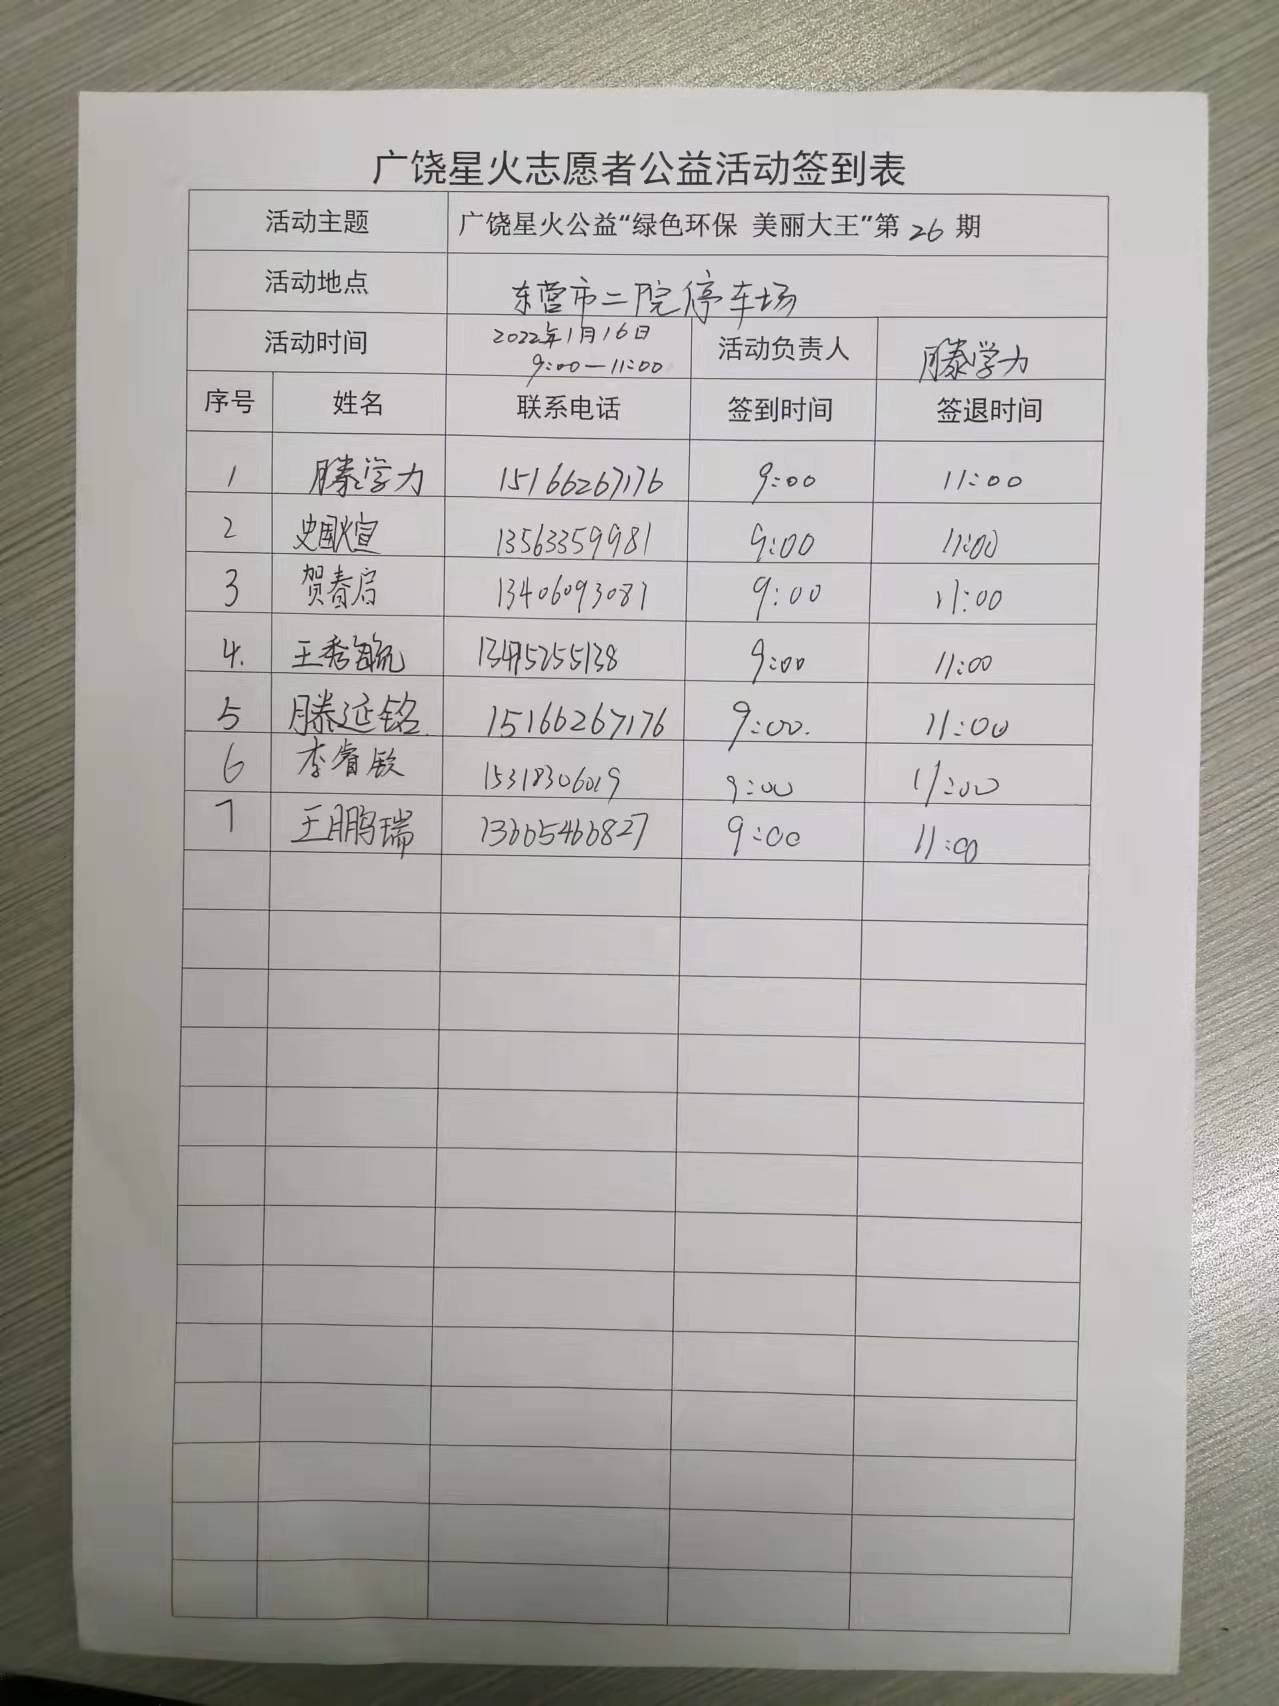 广饶星火志愿者公益活动签到表
活动主题 广饶星火公益“绿色环保 美丽大王”第 26 期
活动地点 东营市二院停车场
活动时间 2022年1月16日 9:00—11:00 活动负责人 滕学力
序号 姓名 联系电话 签到时间 签退时间
1 滕学力 15166267176 9:00 11:00
2 史国煊 13563359981 9:00 11:00
3 贺春启 13406093081 9:00 11:00
4. 王秀 13475255138 9:00 11:00
5 滕延铭 15166267176 9:00. 11:00
6 李睿钦 15318306019 9:00 11:00
7 王鹏瑞 13605460827 9:00 11:00